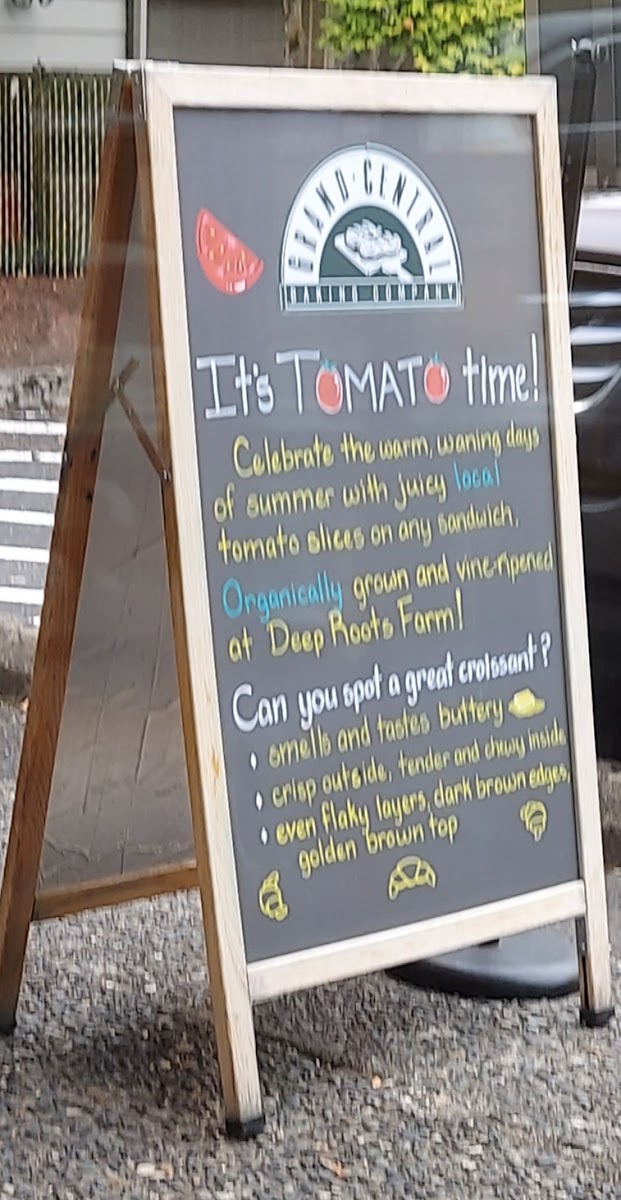 GRAND · CENTRAL
BAKING COMPANY
It's TOMATO time!
Celebrate the warm, waning days
of summer with juicy local
tomato slices on any sandwich.
Organically grown and vine-ripened
at Deep Roots Farm!
Can you spot a great croissant?
smells and tastes buttery
crisp outside, tender and chewy inside
even flaky layers, dark brown edges,
golden brown top